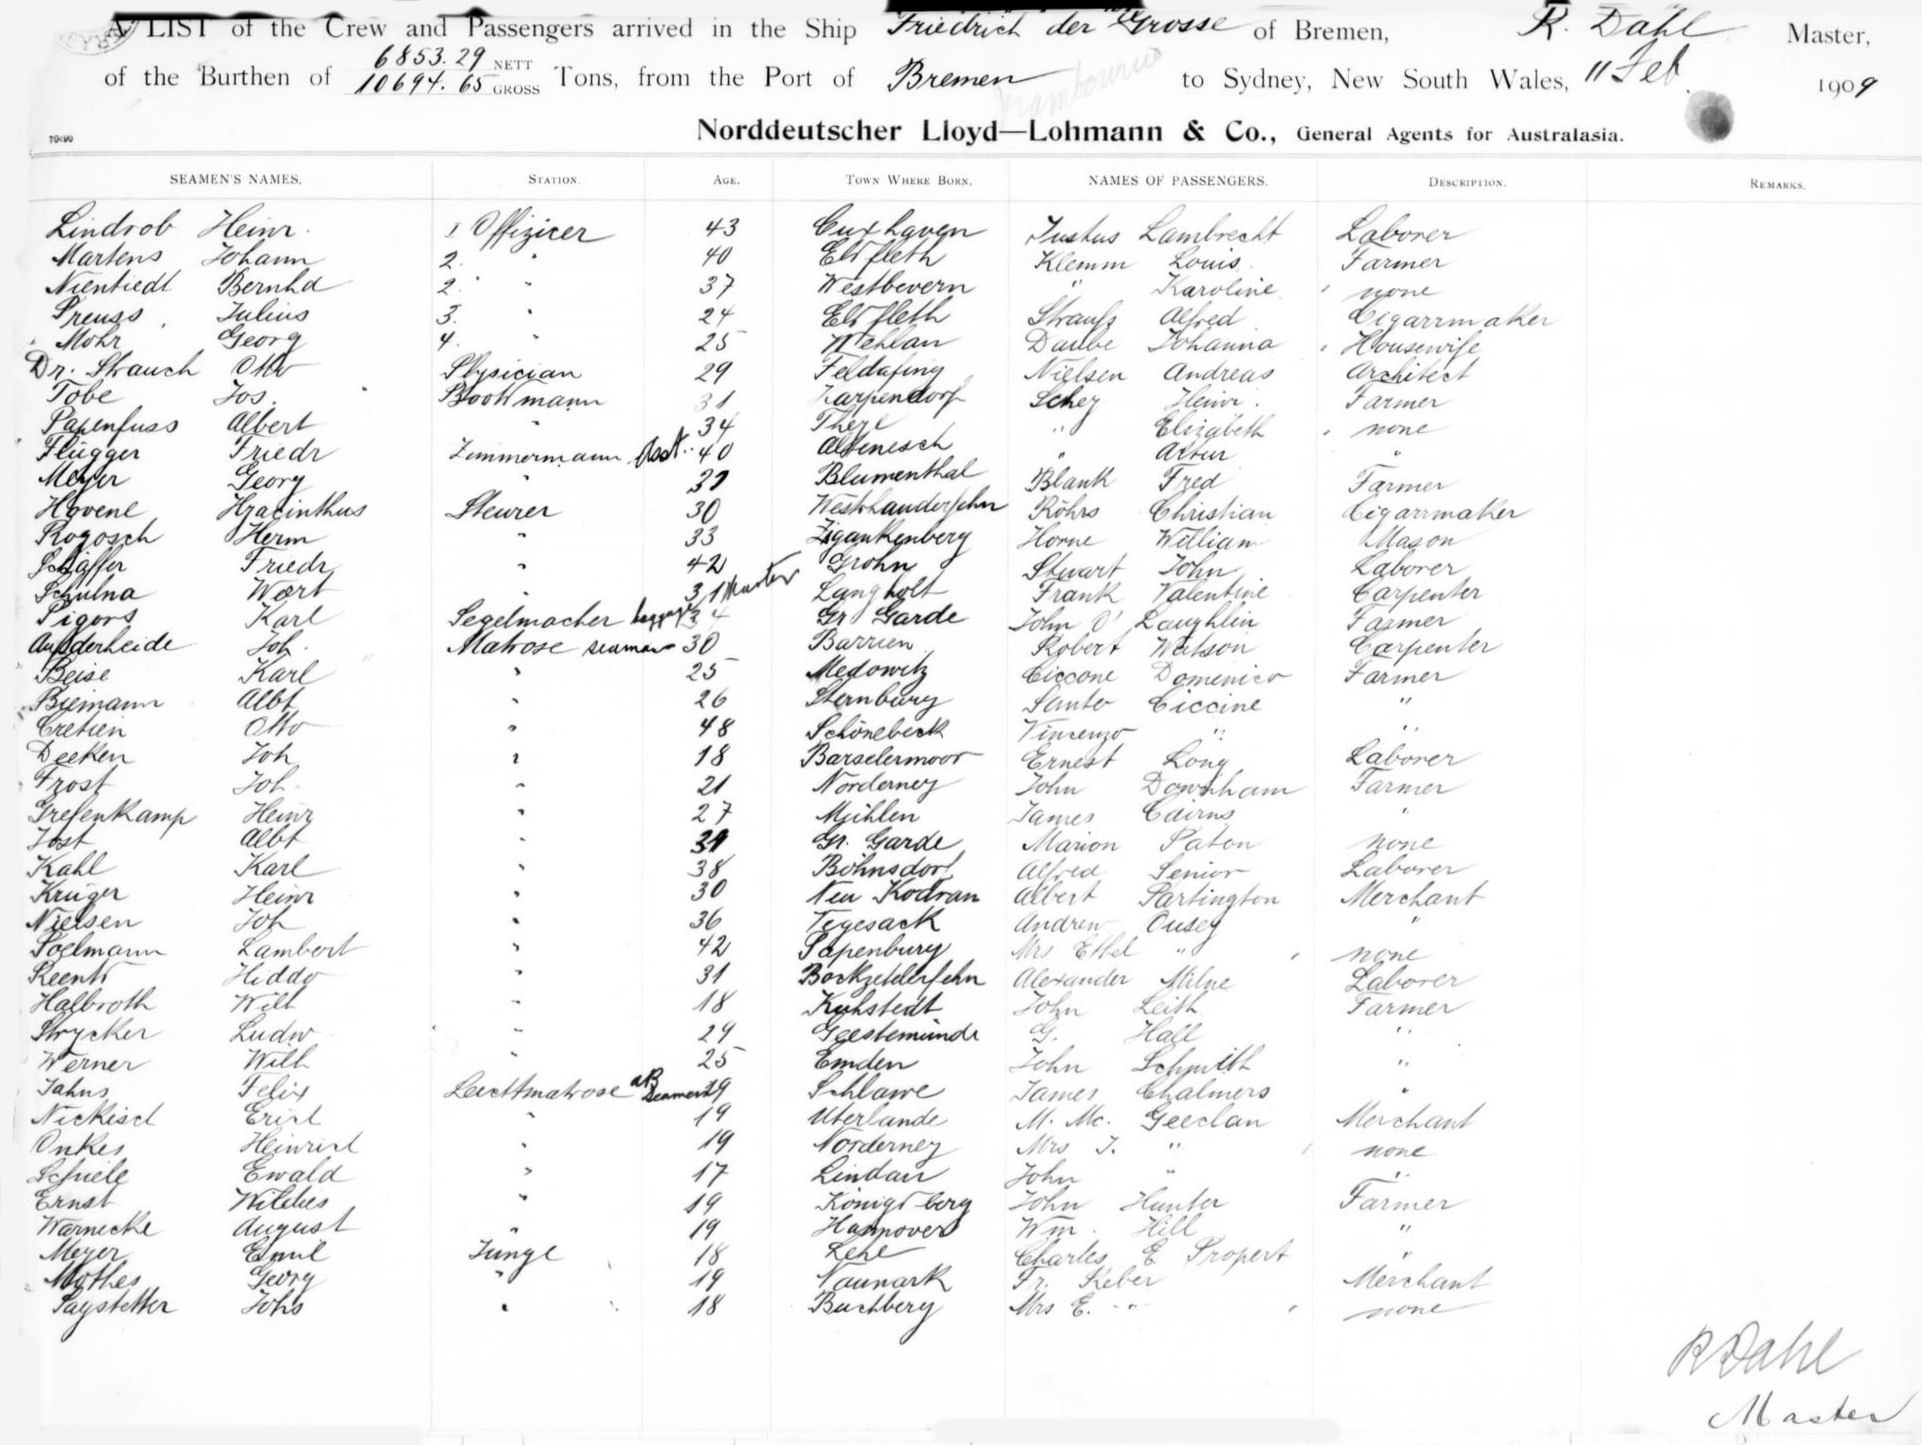 A LIST of the Crew and Passengers arrived in the Ship Friedrich der Grosse of Bremen, R. Dahl Master,
of the Burthen of 6853.29 NETT 10694.65 GROSS Tons, from the Port of Bremen to Sydney, New South Wales, 11 Feb. 1909
Norddeutscher Lloyd—Lohmann & Co., General Agents for Australasia.
SEAMEN'S NAMES. STATION. AGE. TOWN WHERE BORN. NAMES OF PASSENGERS. DESCRIPTION. REMARKS.
Lindrob Heinr. 1 Offizier 43 Cuxhaven Justus Lambrecht Laborer
Martens Johann 2. " 40 Elsfleth Klemm Louis Farmer
Nientiedt Bernhd 2 " 37 Westbevern " Karoline none
Preuss Julius 3. " 24 Elsfleth Strauss Alfred Cigarrmaker
Mohr Georg 4. " 25 Wehlau Daube Johanna Housewife
Dr. Strauch Otto Physician 29 Feldafing Nielsen Andreas Architect
Tobe Jos. Bootsmann 31 Karpendorf Schey Heinr. Farmer
Papenfuss Albert " 34 " Elizabeth none
Flügger Friedr Zimmermann Asst. 40 Altenesch " Artur "
Meyer Georg " Blumenthal Blank Fred Farmer
Hovene Hyacinthus Steurer 30 Westrhauderfehn Röhrs Christian Cigarrmaker
Rogosch Herm " 33 Zigankenberg Horne William Mason
Schäffer Friedr " 42 Grohn Stewart John Laborer
Schulna Wert " 31 Langholt Frank Valentine Carpenter
Pigors Karl Segelmacher 34 Gr Garde John O' Laughlin Farmer
Aufderheide Joh. Matrose seaman 30 Barrien Robert Watson Carpenter
Beise Karl " 25 Medowitz Ciccone Domenico Farmer
Biemann Albt " 26 Sternburg Santo Ciccine "
Cretien Otto " 48 Schönebeck Vincenzo " "
Deeken Joh " 18 Barselermoor Ernest Long Laborer
Frost Joh. " 21 Norderney John Downham Farmer
Grefenkamp Heinr " 27 Mühlen James Cairns "
Jost Albt " Gr. Garde Marion Paton none
Kahl Karl " 38 Böhnsdorf Alfred Senior Laborer
Krüger Heinr " 30 Neu Kodran Albert Partington Merchant
Nielsen Joh " 36 Vegesack Andrew Ousey "
Poelmann Lambert " 42 Papenburg Mrs Ethel " none
Reents Hiddo " 31 Bockzetelerfehn Alexander Milne Laborer
Halbroth Wilh " 18 Kuhstedt John Leith Farmer
Strycker Ludw " 29 Geestemünde G. Hall "
Werner Wilh " 25 Emden John Schmith "
Jahns Felix Leichtmatrose AB Seamen 29 Schlawe James Chalmers "
Nickisch Erich " 19 Uterlande M. Mc. Geeclan Merchant
Onkes Heinrich " 19 Norderney Mrs J. " none
Schiele Ewald " 17 Lindau John " "
Ernst Wilhes " 19 Königsberg John Hunter Farmer
Warnecke August " 19 Hannover Wm. Hill "
Meyer Emil Junge 18 Lehe Charles E Propert "
Mothes Georg " 19 Taunark Fr. Reber Merchant
Paystetter Johs " 18 Buchberg Mrs E. " none
R Dahl
Master